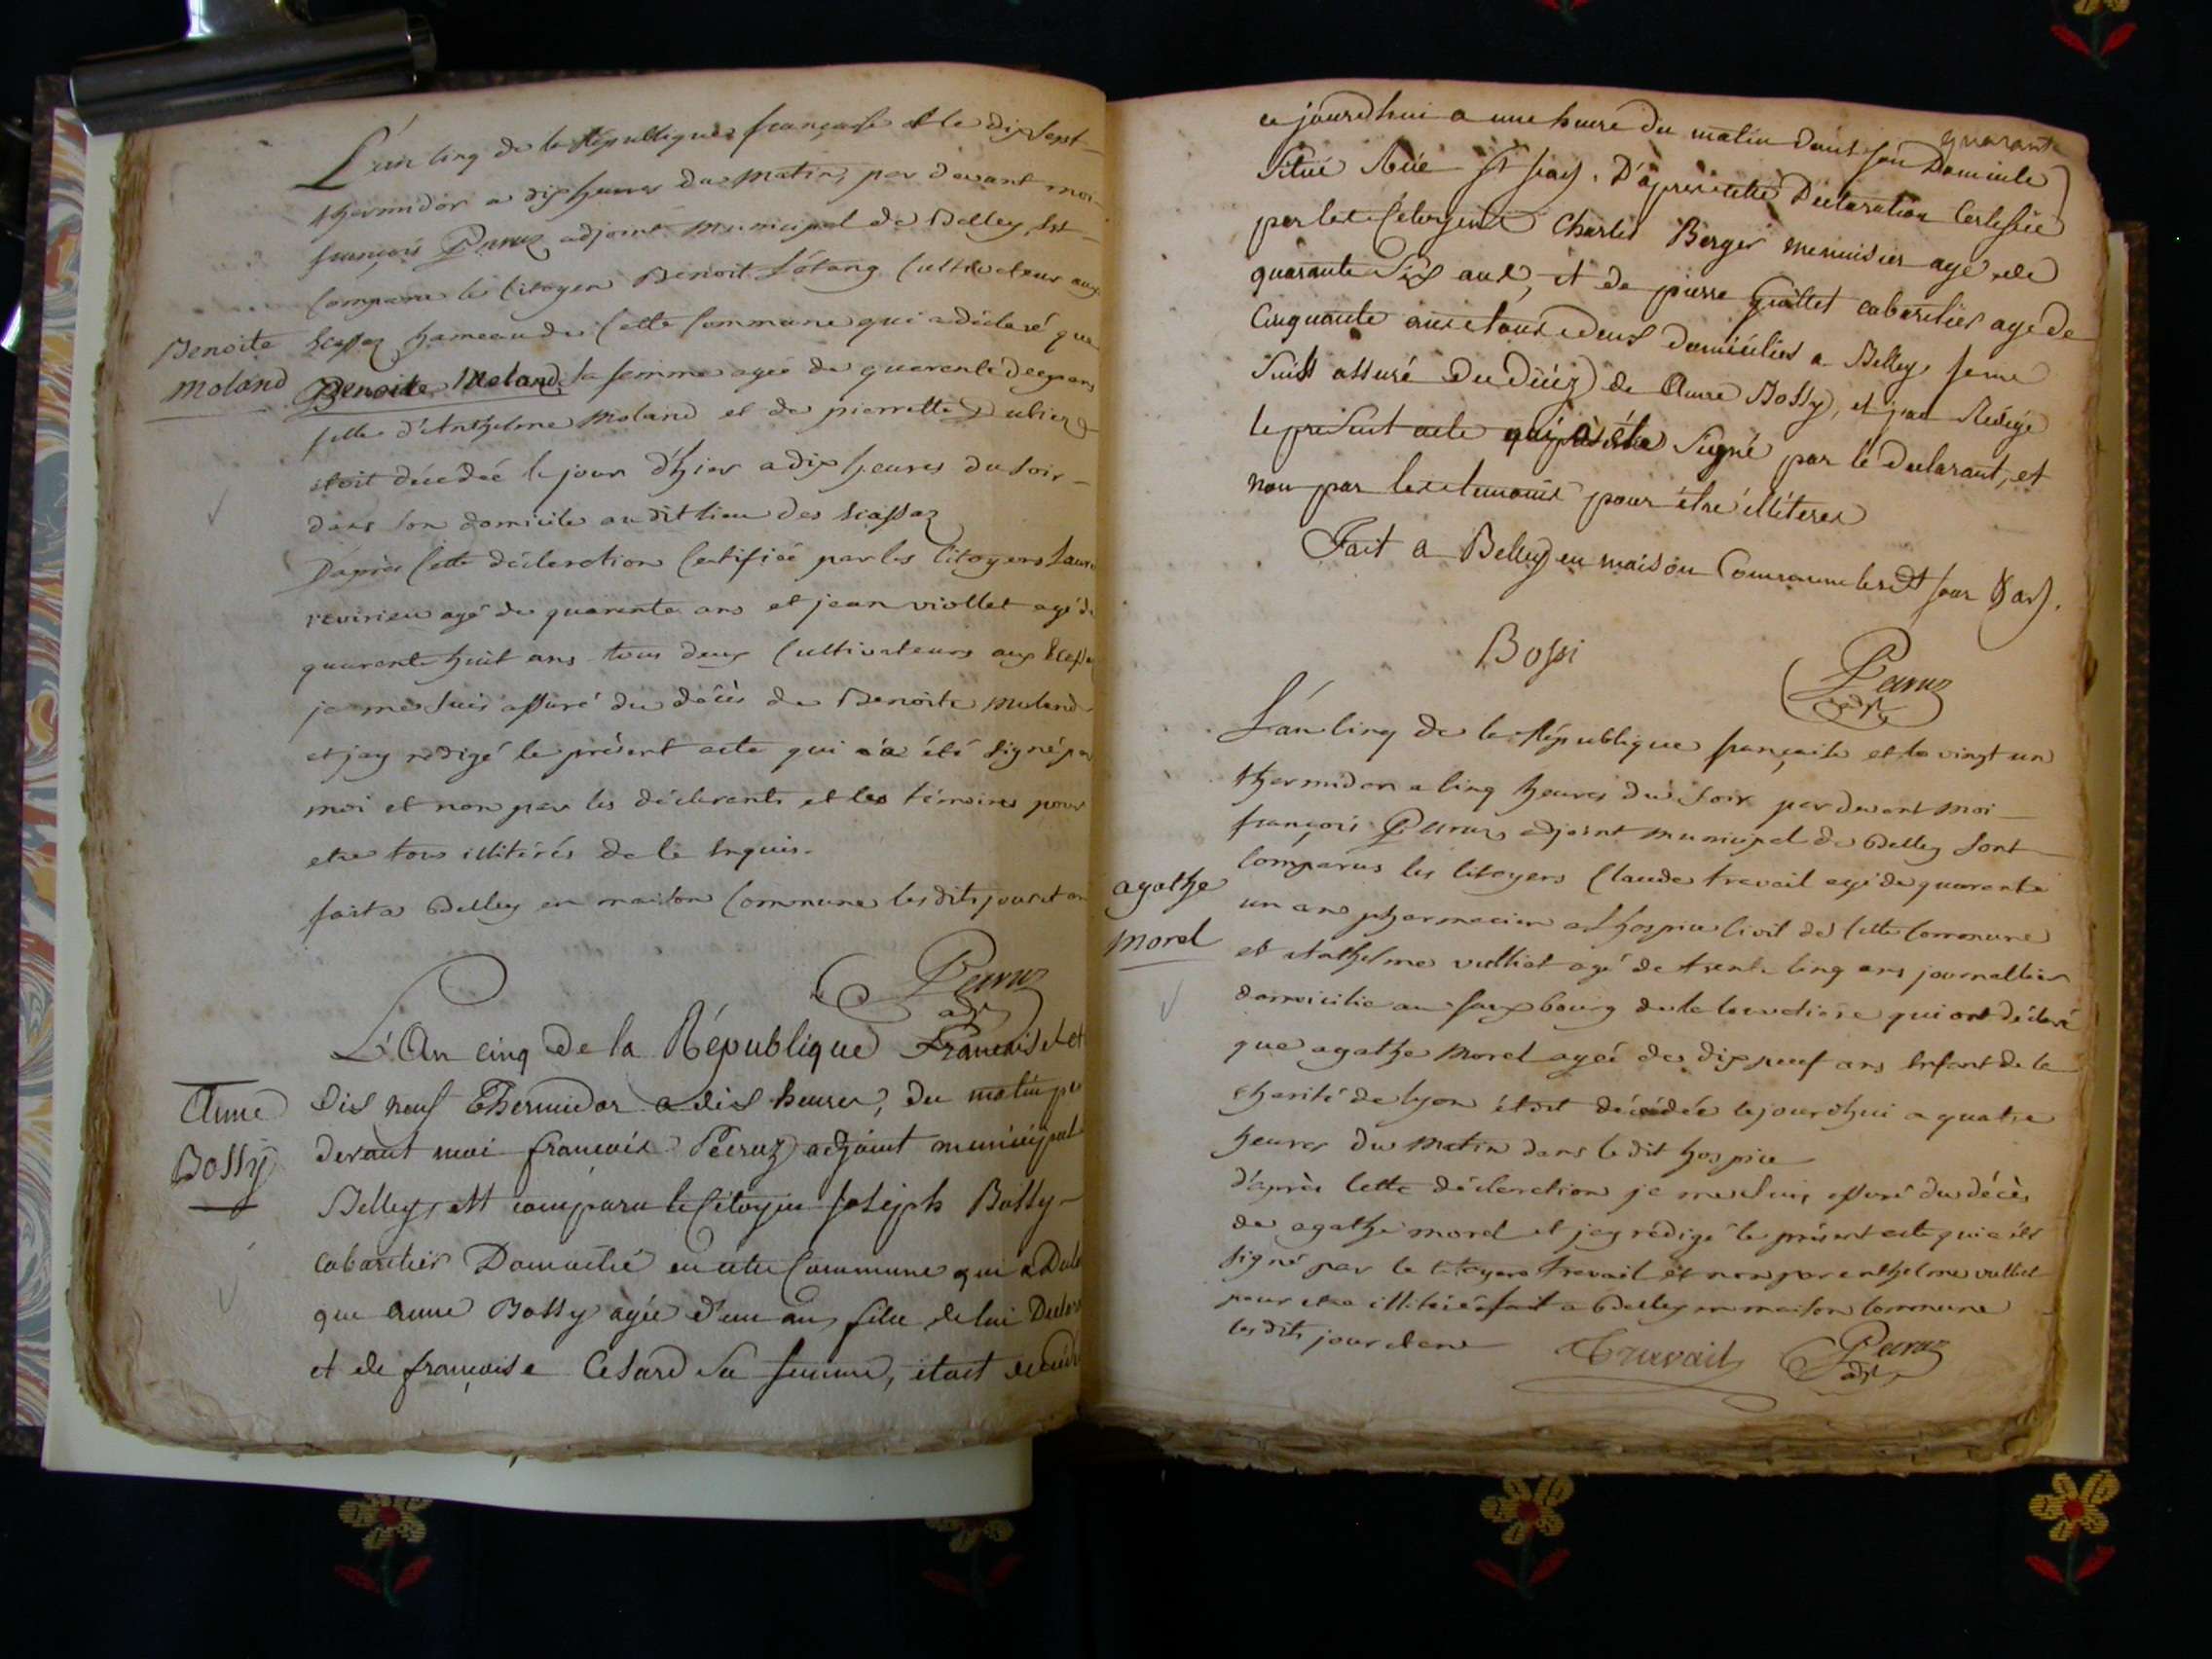 L'an cinq de la République française et le dix sept
thermidor a dix heures du matin, par devant moi
françois Peruz adjoint municipal de Belley, est
comparu le Citoyen Benoit Létang Cultivateur aux
hameau de Cette Commune qui a déclaré que
Benoite
moland
Benoite Moland sa femme agée de quarente deux ans
fille d'Anthelme Moland et de pierrette
étoit décédée le jour d'hier a dix heures du soir
dans son domicile au dit lieu des
D'après Cette déclaration Certifiée par les Citoyens
revirieu agé de quarente ans et jean viollet agé de
quarente huit ans tous deux Cultivateurs aux
je me suis assuré du décès de Benoite Moland
et j'ay redigé le présent acte qui a été signé par
moi et non par les déclarents et les témoins pour
etre tous illitérés de le enquis.
fait a Belley en maison Commune les dits jour et an
Peruz
adjt
L'An cinq de la République Francaise et
Anne
Bossy
dix neuf Thermidor a dix heures, du matin pr
devant moi francois Peeruz adjoint municipal
Belley, est comparu le Citoyen Joseph Bossy
cabartier Domicilié en cette Commune qui a
que Anne Bossy agée d'un an, fille de lui
et de françoise Cesard sa femme, étoit
ce jourdhui a une heure du matin dans son Domicile
quarante
Situé Rüe D'apres cette Declaration Certifiée
par les Citoyens Charles Berger menuisier agé de
quarante Six ans, et de pierre Guillet cabartier agé de
Cinquante ans tous deux domiciliés a Belley, je me
Suis assuré du Décéz de Anne Bossy, et j'ai Redigé
le present acte qui a été Signé par le Declarant, et
non par les temoins pour être illiterés
Fait a Belley en maison Commune lesdt jour & an.
Bossi
Peruz
adjt
L'an cinq de la République française et le vingt un
thermidor a cinq heures du soir par devant moi
françois Peruz adjoint municipal de Belley sont
Comparus les Citoyens Claude travail agé de quarente
agathe
morel
un ans pharmacien a l'hospice Civil de Cette Commune
et Anthelme vulliet agé de trente cinq ans journallier
domicilié au fauxbourg de la qui ont déclaré
que agathe Morel agée de dix neuf ans enfant de la
charité de lyon étoit décédée cejourdhui a quatre
heures du matin dans le dit hospice
d'après Cette déclaration je me suis assuré du décès
de agathe morel et j'ay rédigé le présent acte qui a été
signé par le Citoyen travail et non par anthelme vulliet
pour etre illitéré fait a Belley en maison Commune
les dits jour et an
Travail
Peruz
adjt